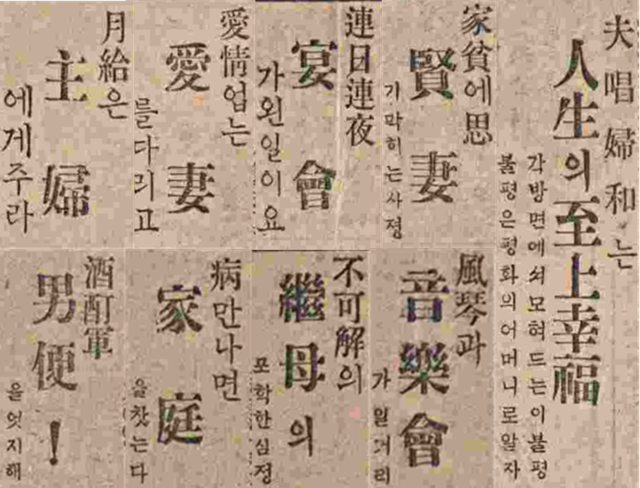 夫唱婦和는
人生의至上幸福
각방면에서모혀드는이불평
불평은평화의어머니로알자
家貧에思
賢妻
기막히는사졍
連日連夜
宴會
가왼일이요
愛情업는
愛妻
를다리고
月給은
主婦
에게주라
風琴과
音樂會
가일거리
不可解의
繼母의
포학한심졍
病만나면
家庭
을찻는다
酒酊軍
男便!
을엇지해